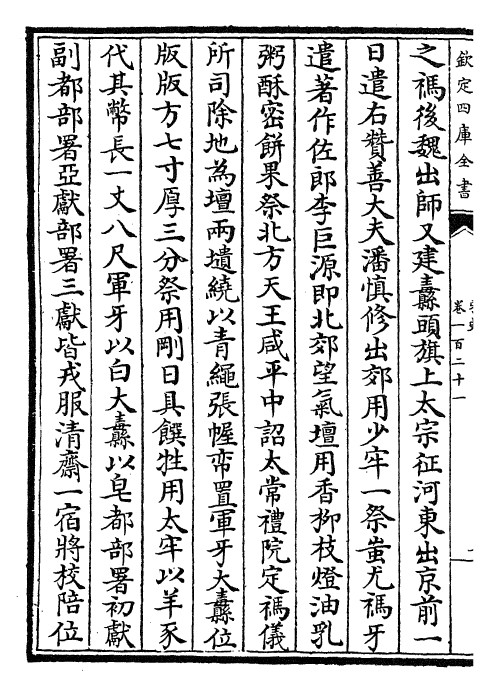 欽定四庫全書
宋史
卷一百二十一
二
之禡後魏出師又建纛頭旗上太宗征河東出京前一
日遣右贊善大夫潘慎修出郊用少牢一祭蚩尤禡牙
遣著作佐郎李巨源即北郊望氣壇用香栁枝燈油乳
粥酥密餅果祭北方天王咸平中詔太常禮院定禡儀
所司除地為壇兩壝繞以青繩張幄帟置軍牙大纛位
版版方七寸厚三分祭用剛日具饌牲用太牢以羊豕
代其幣長一丈八尺軍牙以白大纛以皂都部署初獻
副都部署亞獻部署三獻皆戎服清齋一宿將校陪位